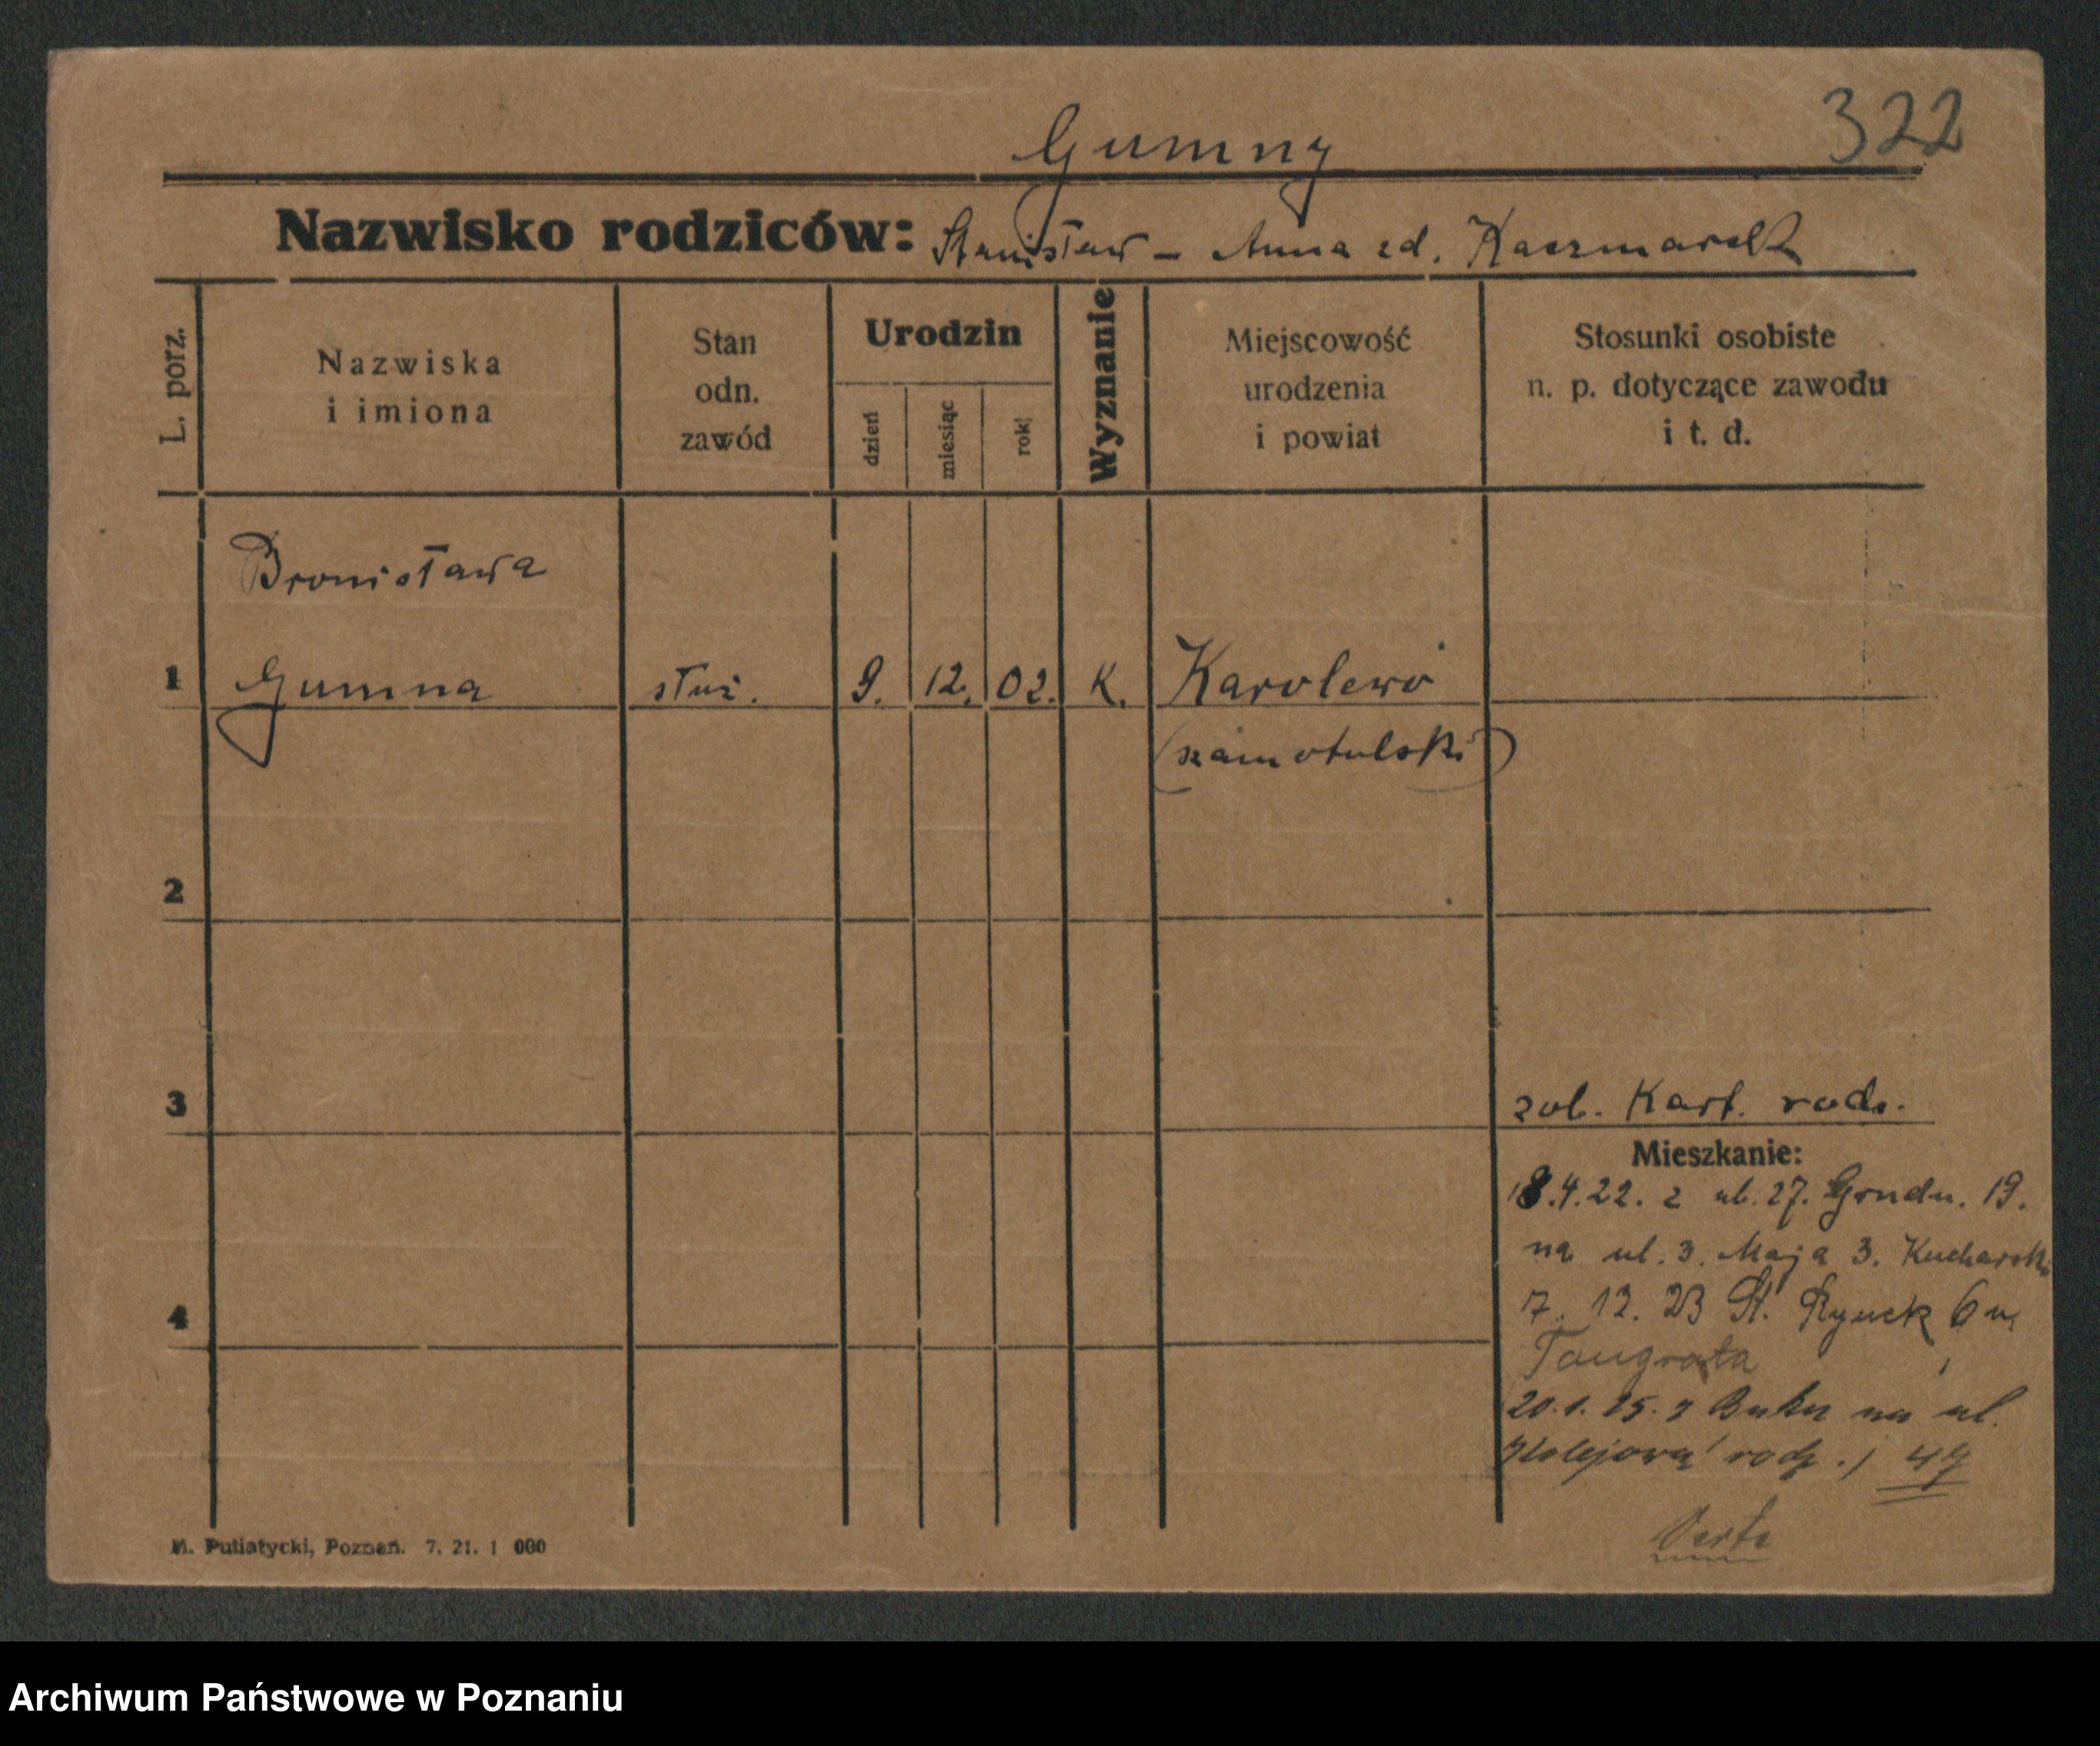 322
Gumny
Nazwisko rodziców: Stanisław – Anna zd. Kaczmarek
L. porz.
Nazwiska
i imiona
Stan
odn.
zawód
Urodzin
dzień
miesiąc
rok
Wyznanie
Miejscowość
urodzenia
i powiat
Stosunki osobiste
n. p. dotyczące zawodu
i t. d.
Bronisława
1 Gumna służ. 9. 12. 02. K. Karolewo
(szamotulski)
2
3
zob. Kart. rodz.
Mieszkanie:
18.4.22. z ul. 27. Grudn. 19.
na ul. 3. Maja 3. Kucharski
4
7. 12. 23 St. Rynek 6 u
20.1.25. z Buku na ul.
Kolejową rodz. 47
Verte
M. Putiatycki, Poznań. 7. 21. 1 000
Archiwum Państwowe w Poznaniu